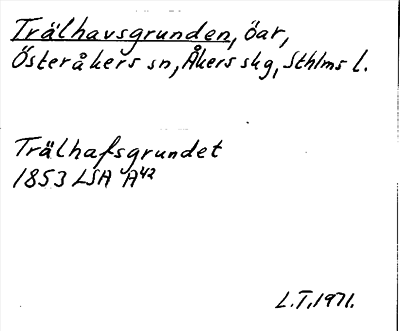 Trälhavsgrunden, öar,
Österåkers sn, Åkers skg, Sthlms l.
Trälhafsgrundet
1853 LSA A42
L.T. 1971.